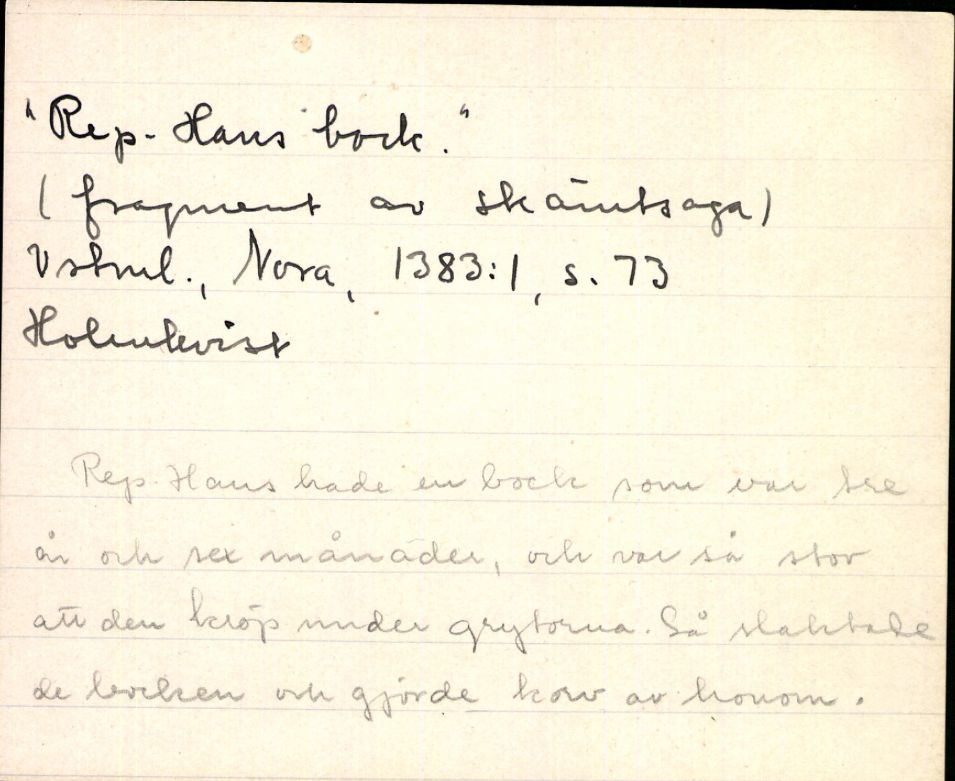 "Rep-Hans bock."
(fragment av skämtsaga)
Vstml., Nora, 1383:1, s. 73
Holmkvist
Rep-Hans hade en bock som var tre
år och sex månader, och var så stor
att den kröp under grytorna. Så slaktade
de bocken och gjorde korv av honom.